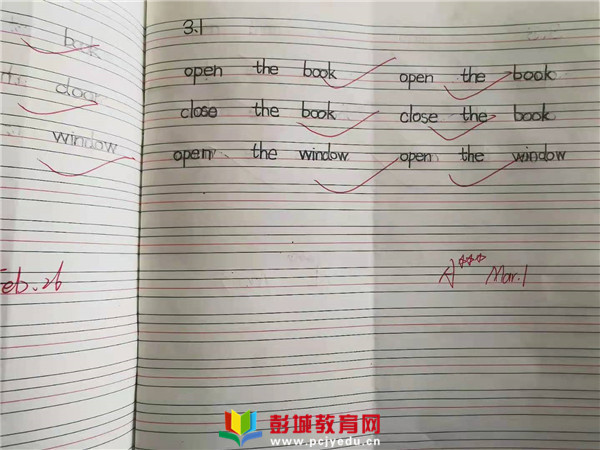 book
door
window
Feb. 26
3.1
open the book open the book
close the book close the book
open the window open the window
A☆☆☆ Mar. 1
彭城教育网
www.pcjyedu.cn